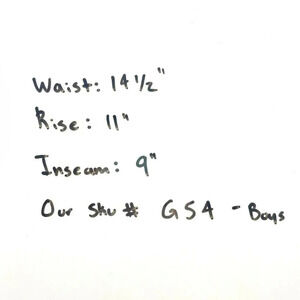 Waist: 14 1/2"
Rise: 11"
Inseam: 9"
Our Sku # G54 - Boys